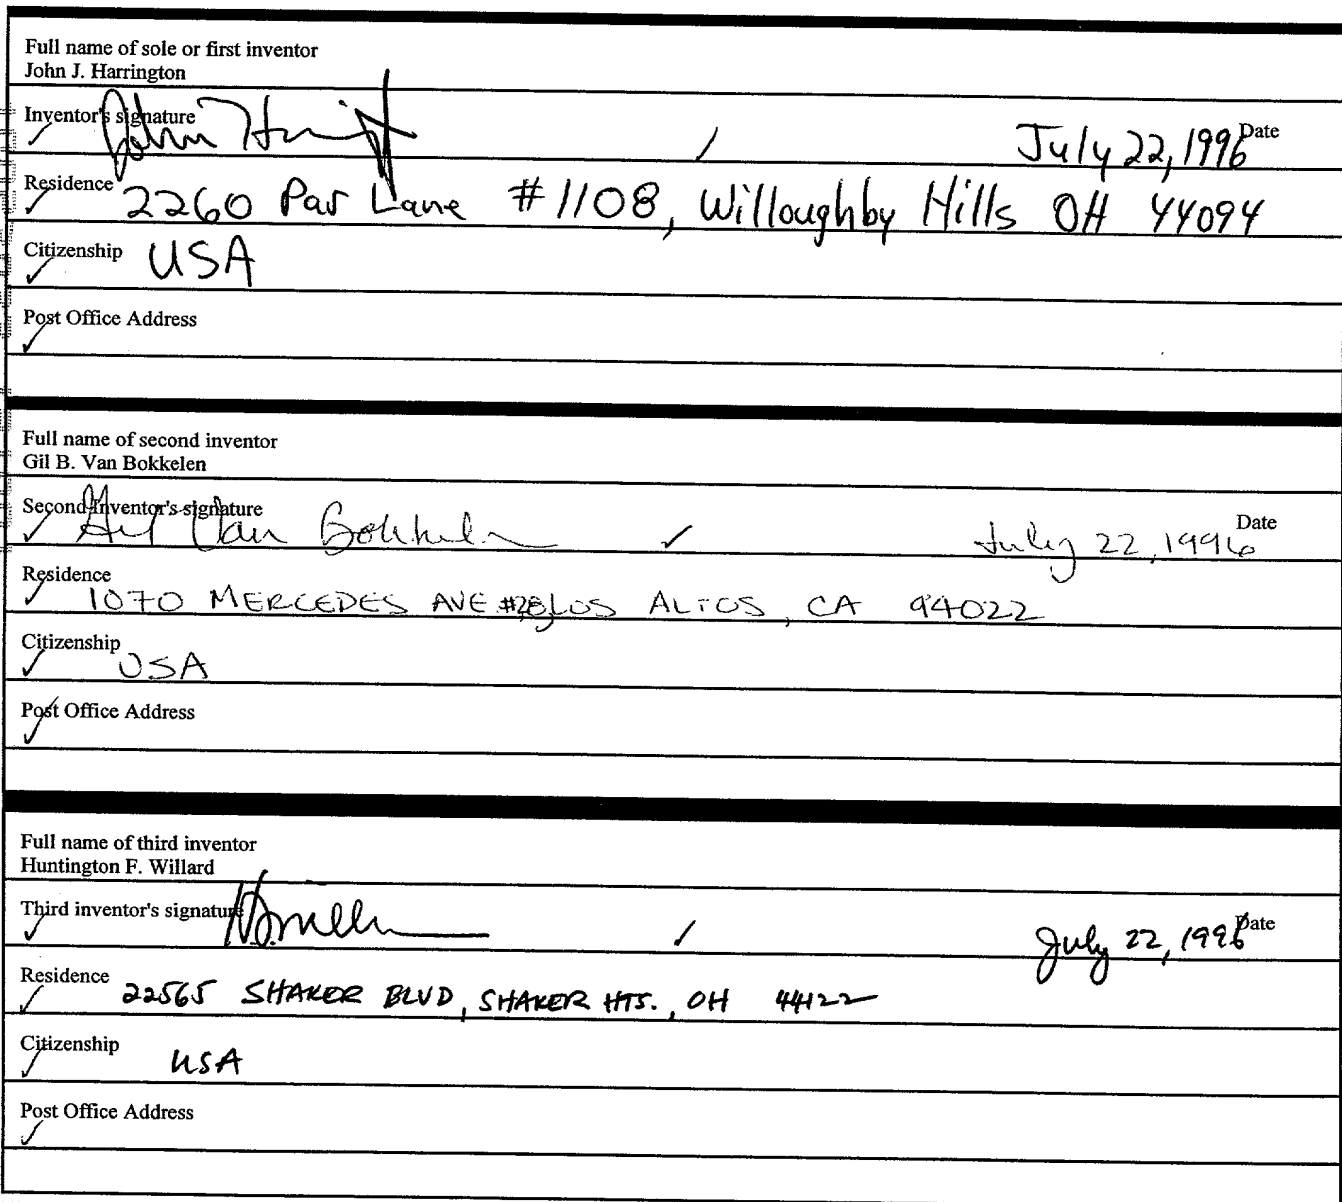 Full name of sole or first inventor
John J. Harrington
Inventor's signature John Date
July 22, 1996
Residence 2260 Par Lane #1108, Willoughby Hills OH 44094
Citizenship USA
Post Office Address
Full name of second inventor
Gil B. Van Bokkelen
Second Inventor's signature Gil Van Bokkelen July 22, 1996 Date
Residence
1070 MERCEDES AVE #28 LOS ALTOS, CA 94022
Citizenship USA
Post Office Address
Full name of third inventor
Huntington F. Willard
Third inventor's signature July 22, 1996 Date
Residence 22565 SHAKER BLVD, SHAKER HTS., OH 44122
Citizenship USA
Post Office Address